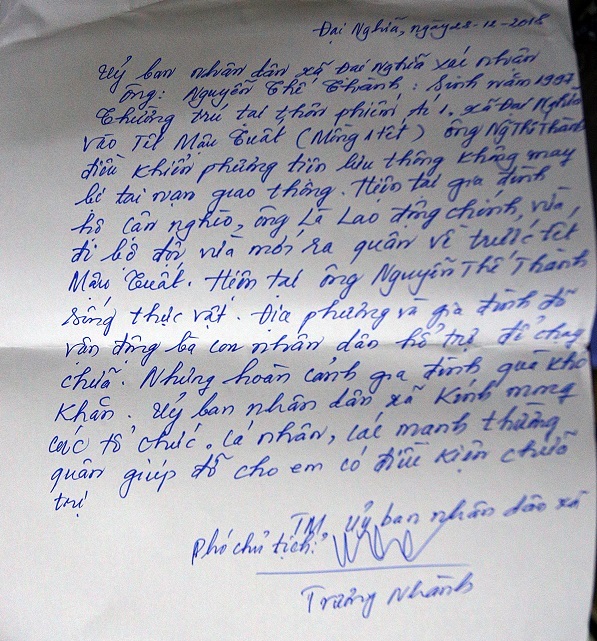 Đại Nghĩa, ngày 28-12-2018
Uỷ ban nhân dân xã Đại Nghĩa xác nhận
ông: Nguyễn Thế Thành: Sinh năm 1997
Thường trú tại thôn phiếm Ái 1. xã Đại Nghĩa
vào Tết Mậu Tuất (Mồng 1 tết) ông Ng Thế Thành
điều khiển phương tiện lưu thông không may
bị tai nạn giao thông. Hiện tại gia đình
hộ cận nghèo, ông Là Lao động chính, vừa
đi bộ đội vừa mới ra quân về trước tết
Mậu Tuất. Hiện tại ông Nguyễn Thế Thành
sống thực vật. Địa phương và gia đình đã
vận động bà con nhân dân hổ trợ để chạy
chữa. Nhưng hoàn cảnh gia đình quá khó
khăn. Uỷ ban nhân dân xã Kính mong
các tổ chức, cá nhân, các mạnh thường
quân giúp đỡ cho em có điều kiện chữa
trị
TM Uỷ ban nhân dân xã
Phó chủ tịch:
Trương Nhành